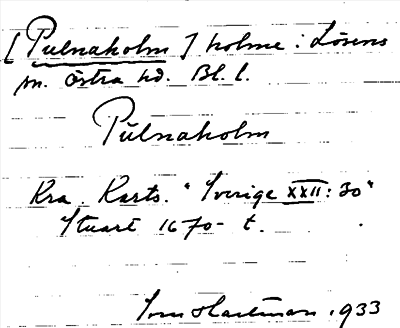 [Pulnaholm] holme i Lösens
sn. Östra hd. Bl. l.
Pulnaholm
Kra. Karts. "Sverige XXII: 30"
Stuart 1670-t.
Tom Hartman 1933